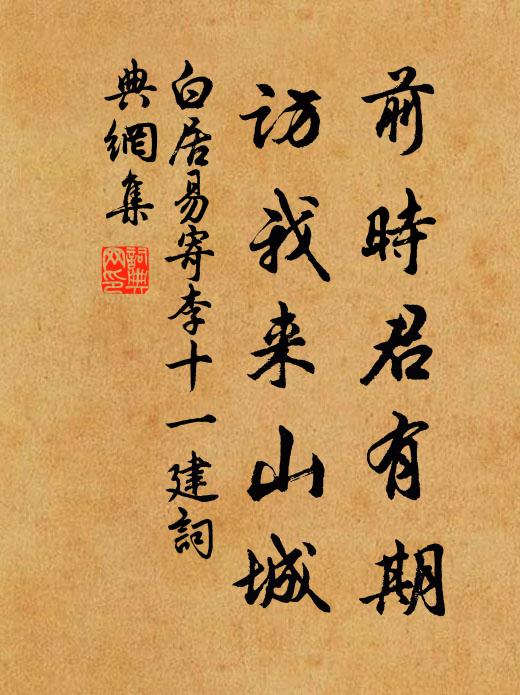 前時君有期
訪我来山城
白居易寄李十一建詞
典網集
詞典
网印